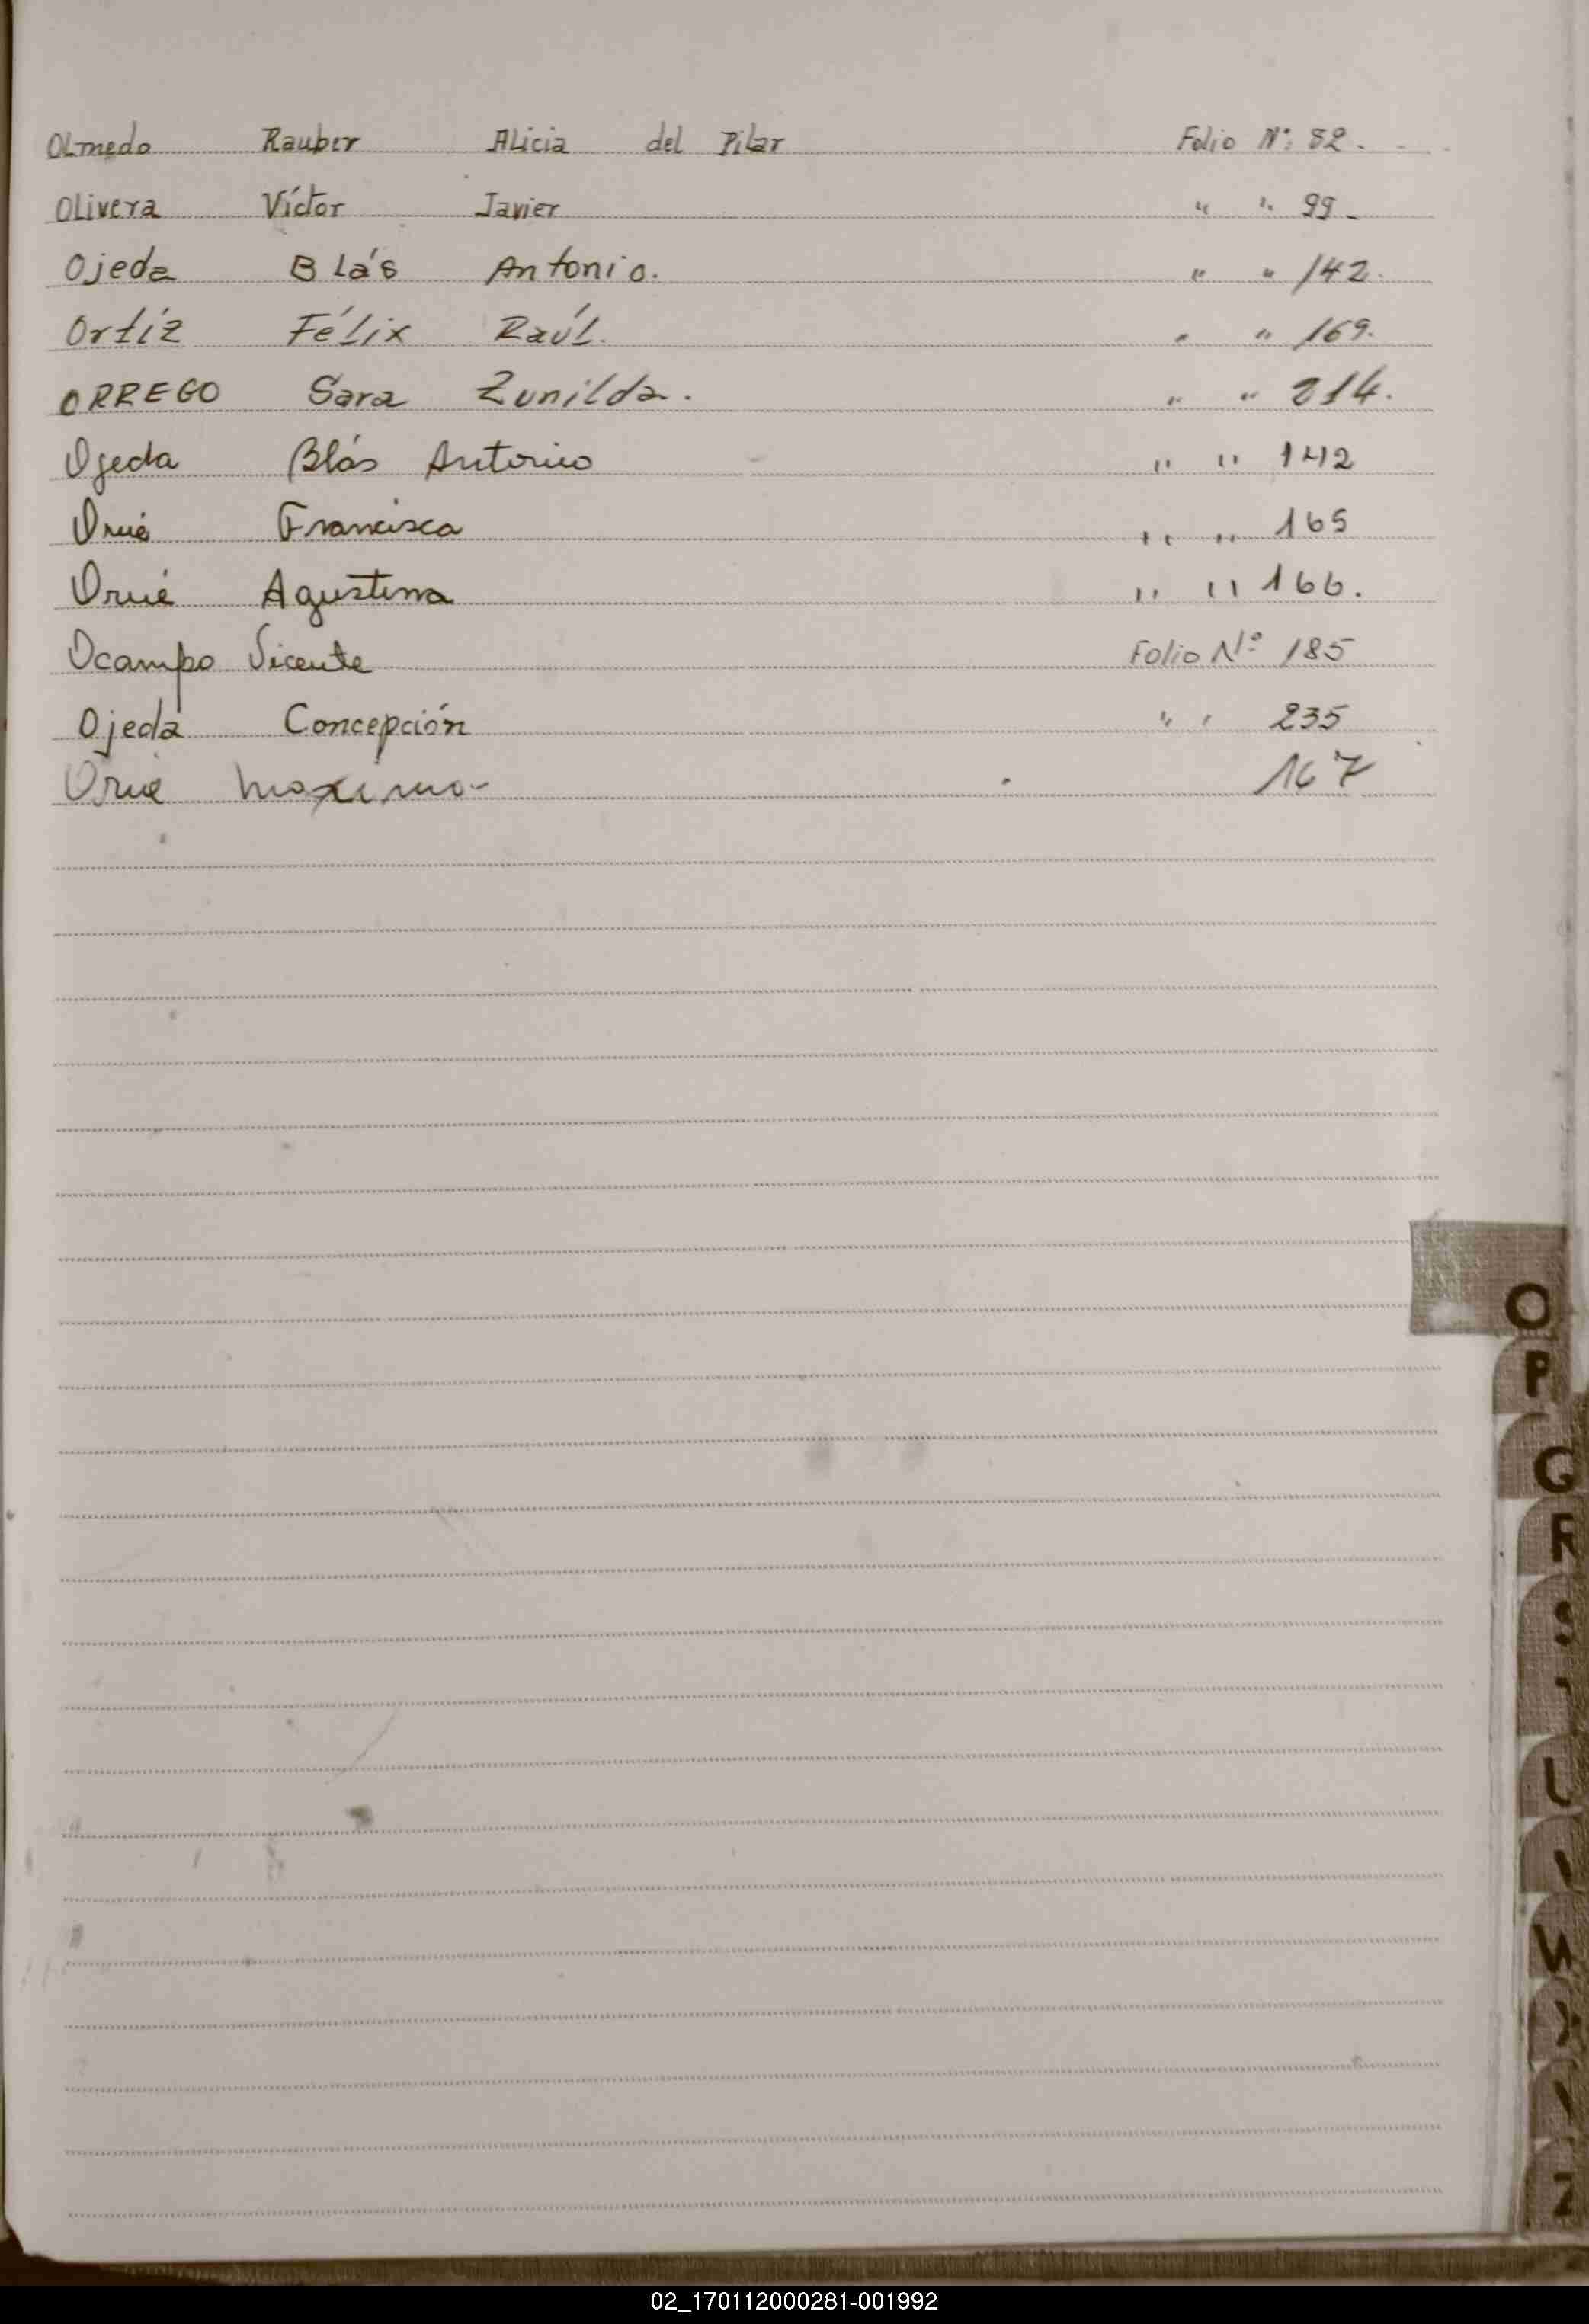 Olmedo Rauber Alicia del Pilar Folio Nº: 82.
Olivera Víctor Javier " " 99-
Ojeda Blás Antonio. " " 142.
Ortíz Félix Raúl. " " 169.
ORREGO Sara Zunilda. " " 214.
Ojeda Blás Antonio " " 142
Orué Francisca " " 165
Orué Agustina " " 166.
Ocampo Vicente Folio Nº 185
Ojeda Concepción " " 235
Orue Maximo- 167
O
P
R
S
02_170112000281-001992